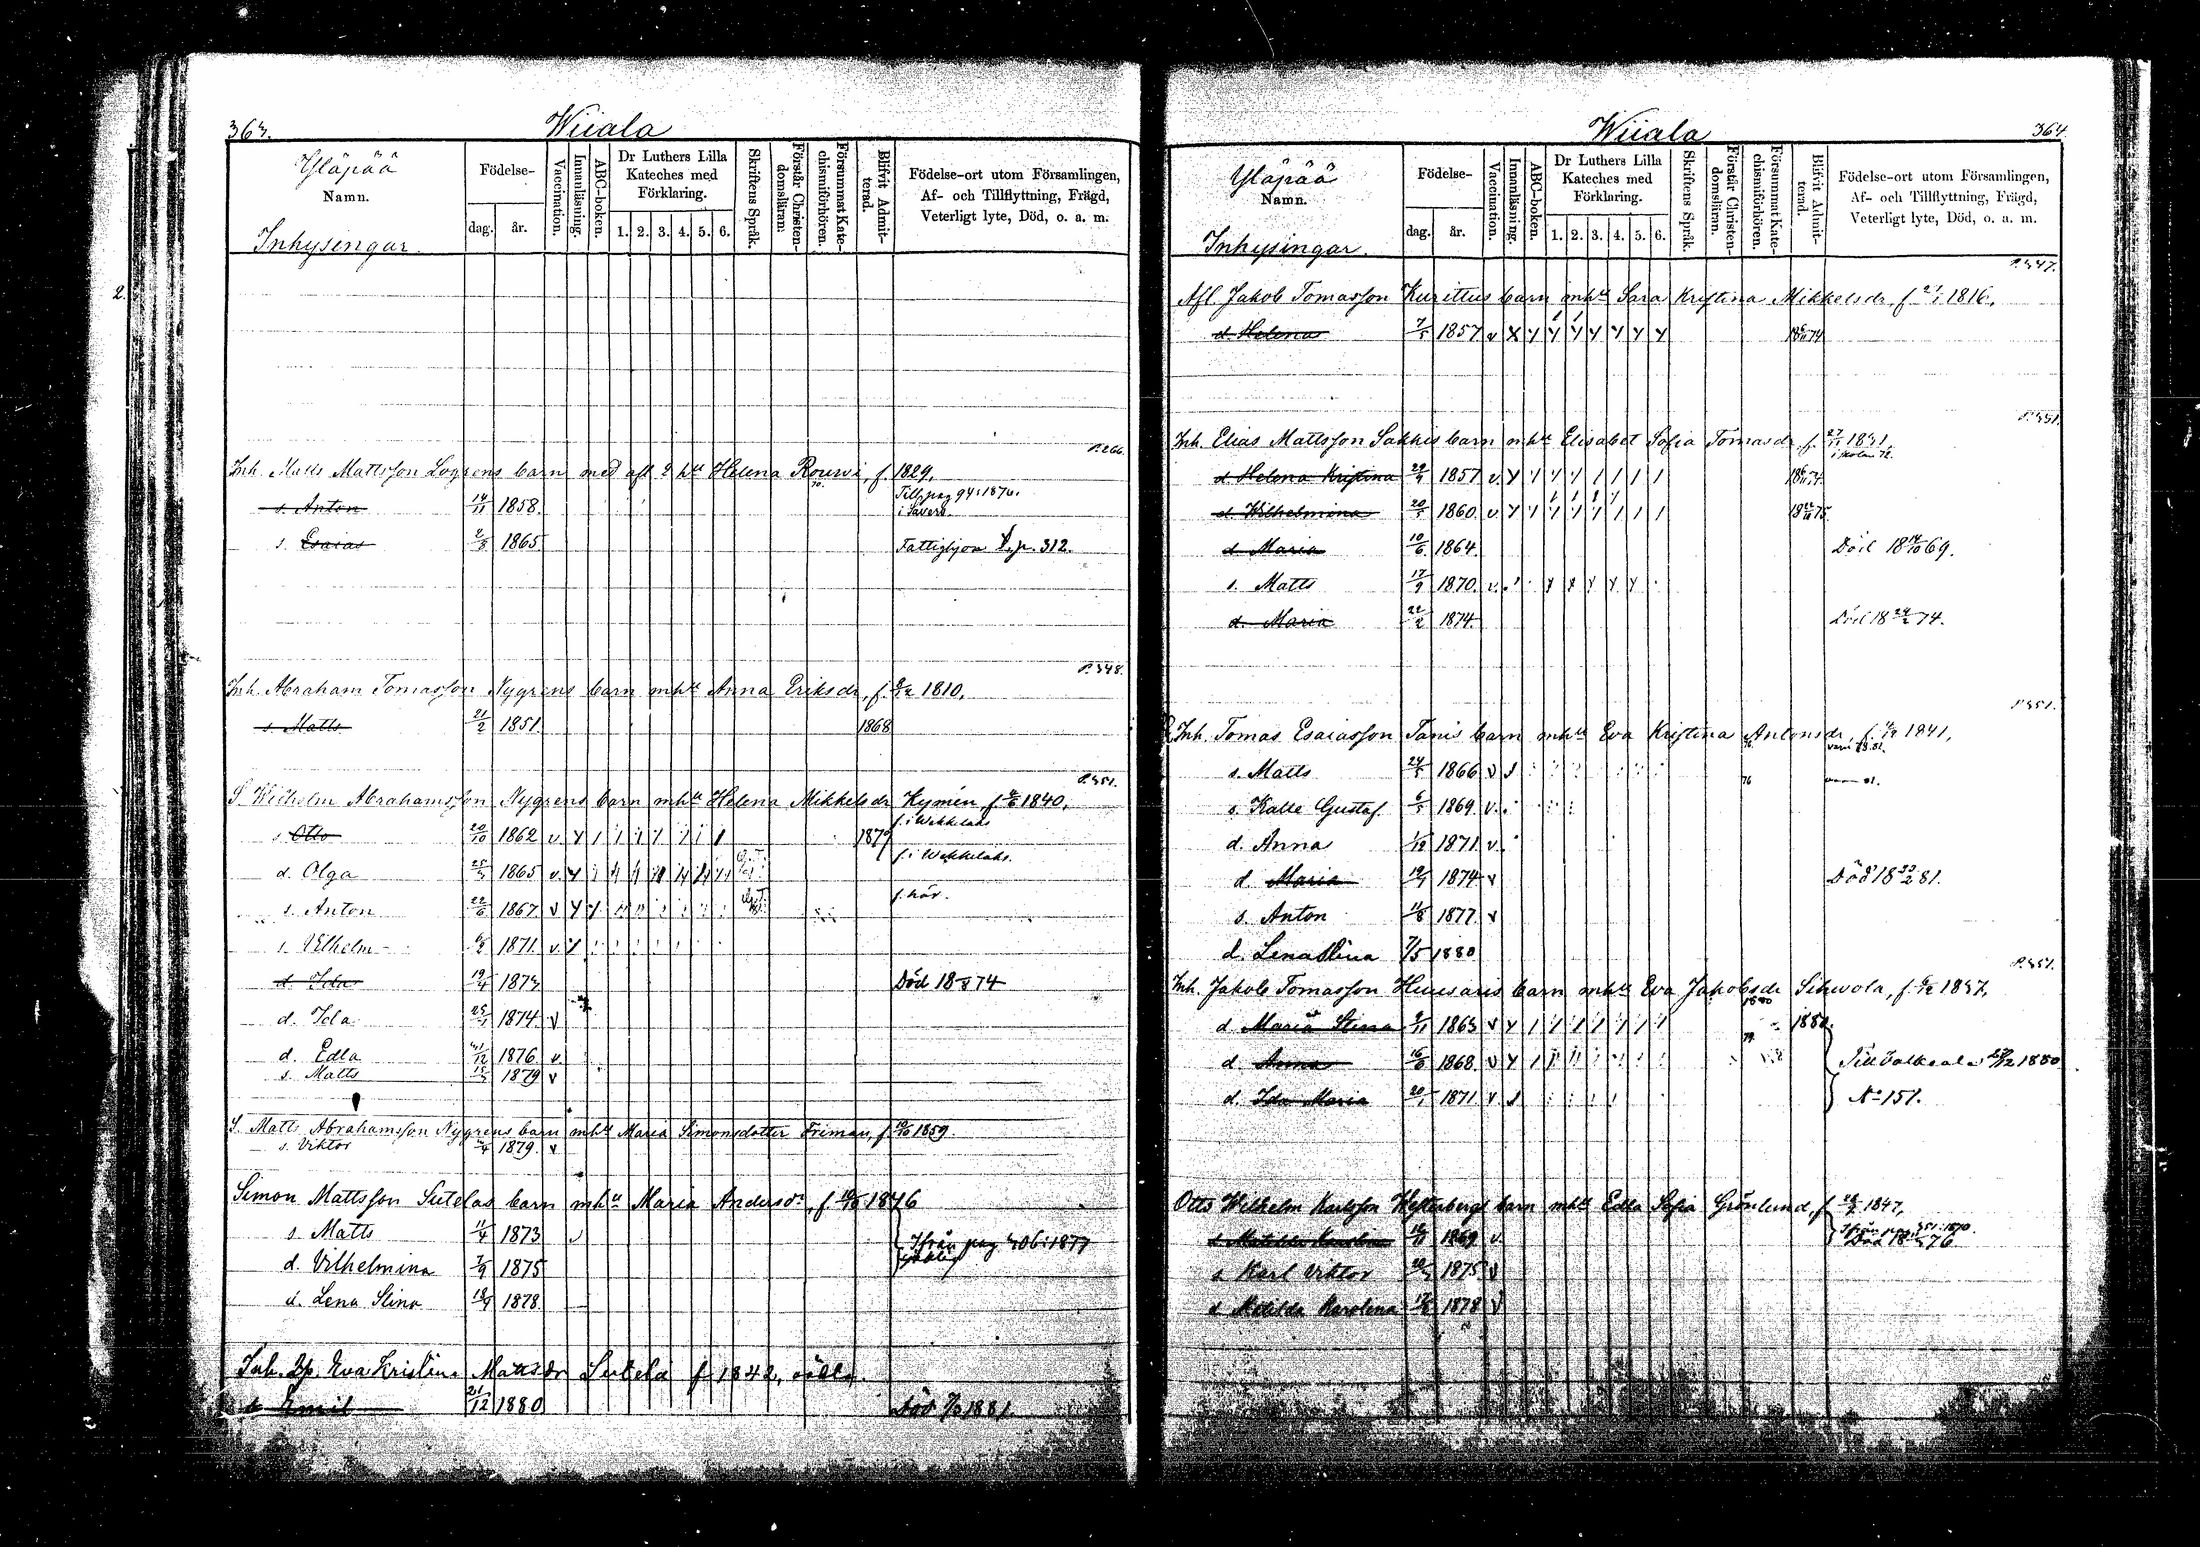 363.
Wiiala
Yläpää
Namn.
Inhysingar
Födelse-
dag.
år.
Vaccination.
Innanläsning.
ABC-boken.
Dr Luthers Lilla
Kateches med
Förklaring.
1. 2. 3. 4. 5. 6.
Skriftens Språk.
Förstår Christen-
domsläran:
Försummat Kate-
chismiförhören.
Blifvit Admit-
terad.
Födelse-ort utom Församlingen,
Af- och Tillflyttning, Frägd,
Veterligt lyte, Död, o. a. m.
2.
P. 266.
Inh. Matts Mattsson Logrens barn med afl 2 hu Helena Rourvi, f. 1829,
s. Anton 14/11 1858. Till pag 94: 1876.
s. Esaias 2/3 1865 Fattighjon p. 312.
P. 348.
Inh. Abraham Tomasson Nygrens barn mhu Anna Eriksdr, f. 8/12 1810,
s. Matts 21/2 1851. 1868
P. 351.
S. Wilhelm Abrahamsson Nygrens barn mhu Helena Mikkelsdr Hymén, f. 1840,
s. Otto 20/10 1862 v. 1879 f. i Wekkelaks
d. Olga 1865 v. f. i Wekkelaks.
s. Anton 22/6 1867 v f. här.
s. Vilhelm 1871. v.
d. Ida 19/4 1873 Död 18 74
d. Ida 25/1 1874 v
d. Edla 31/12 1876 v.
s. Matts 1879 v
S. Matts Abrahamsson Nygrens barn mhu Maria Simonsdotter Friman, f. 1859
s. Viktor 1879. v
Simon Mattsson Sutelas barn mhu Maria Andersdr, f. 1846
s. Matts 11/4 1873 Ifrån pag 306: 1877
d. Vilhelmina 7/9 1875
d. Lena Stina 1878
Inh. Eva Kristina Mattsdr Sutela f 1842,
s. Emil 21/12 1880 Död 1881.
Wiiala
364.
Yläpää
Namn.
Inhysingar.
Födelse-
dag.
år.
Vaccination.
Innanläsning.
ABC-boken.
Dr Luthers Lilla
Kateches med
Förklaring.
1. 2. 3. 4. 5. 6.
Skriftens Språk.
Förstår Christen-
domsläran.
Försummat Kate-
chismiförhören.
Blifvit Admit-
terad.
Födelse-ort utom Församlingen,
Af- och Tillflyttning, Frägd,
Veterligt lyte, Död, o. a. m.
P. 347.
Afl Jakob Tomasson Kurittus barn mhu Sara Kristina Mikkelsdr, f. 21/1 1816,
d. Helena 7/5 1857 v
P. 351.
Inh. Elias Mattsson Sakkis barn mhu Elisabet Sofia Tomasdr f. 1831,
d. Helena Kristina 1857 v.
d. Wilhelmina 20/5 1860 v
d. Maria 10/6 1864. Död 18 14/10 69.
s. Matts 17/9 1870. v.
d. Maria 22/2 1874. Död 18 24/2 74.
P. 351.
Inh. Tomas Esaiasson Tanis barn mhu Eva Kristina Antonsdr, f. 1841,
s. Matts 24/5 1866 v 76
s. Kalle Gustaf 6/5 1869 v.
d. Anna 1/12 1871 v.
d. Maria 1874 v Död 18 81.
s. Anton 11/8 1877. v
d. Lena Stina 7/5 1880
P. 351.
Inh. Jakob Tomasson Huusaris barn mhu Eva Jakobsdr Sihvola, f. 1837,
d. Maria Stina 2/11 1863 v 1880.
d. Anna 1868 v Till Valkeala 1880
d. Ida Maria 1871 v. No 151.
Otto Wilhelm Karlsson Westerbergs barn mhu Edla Sofia Grönlund, f 1847,
d. Matilda Karolina 1869 v. Ifrån pag 351: 1870 Död 18 76
s. Karl Viktor 1875 v
d. Matilda Karolina 1878 v